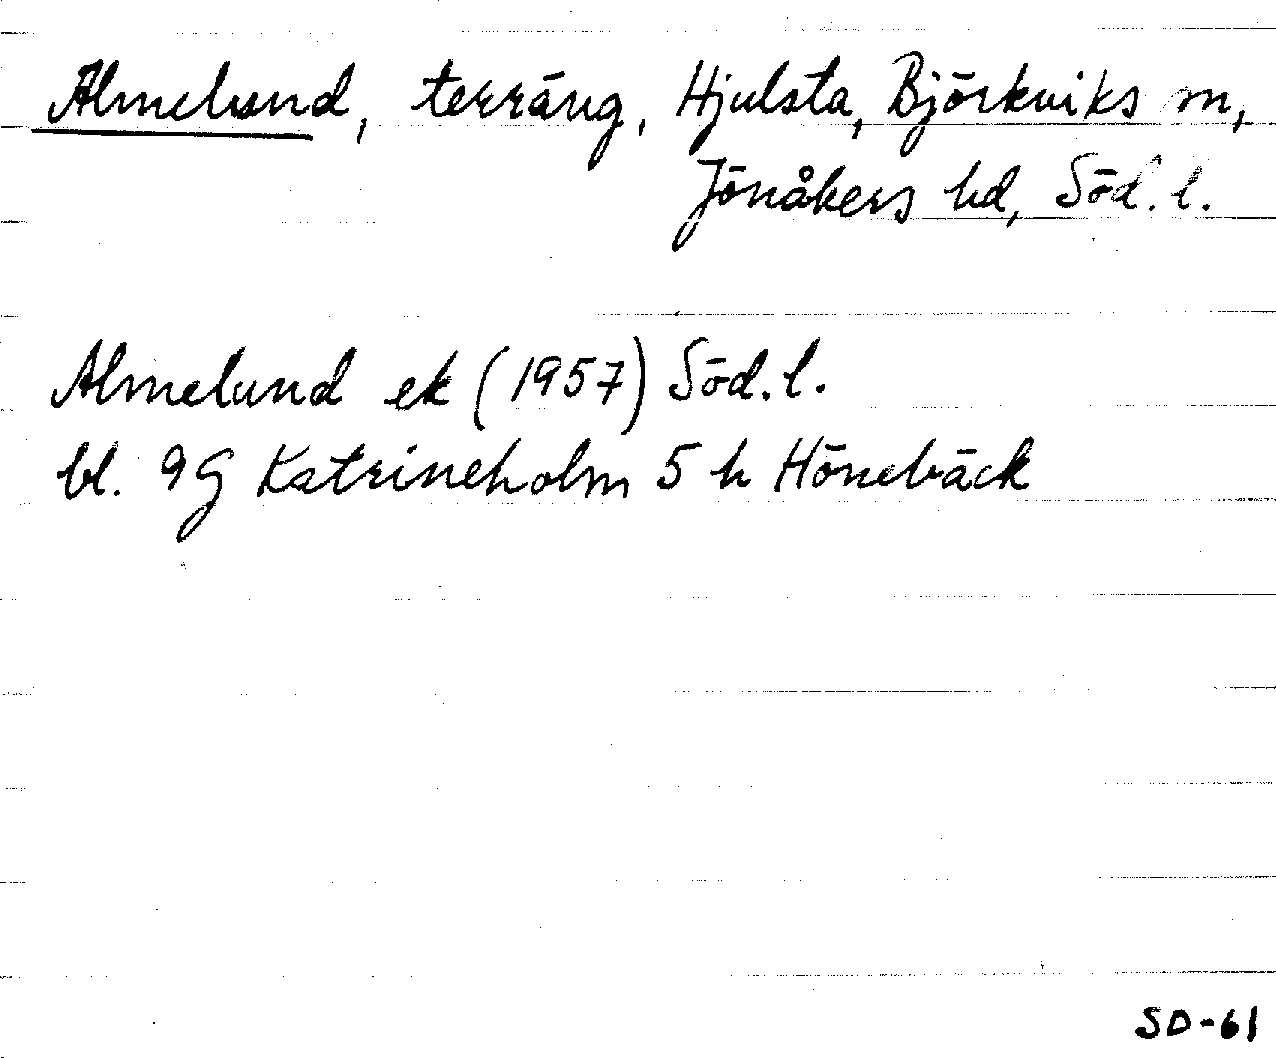 Almelund, terräng, Hjulsta, Björkviks sn,
Jönåkers hd, Söd. l.
Almelund ek (1957) Söd. l.
bl. 9G Katrineholm 5 h Hönebäck
SD-61